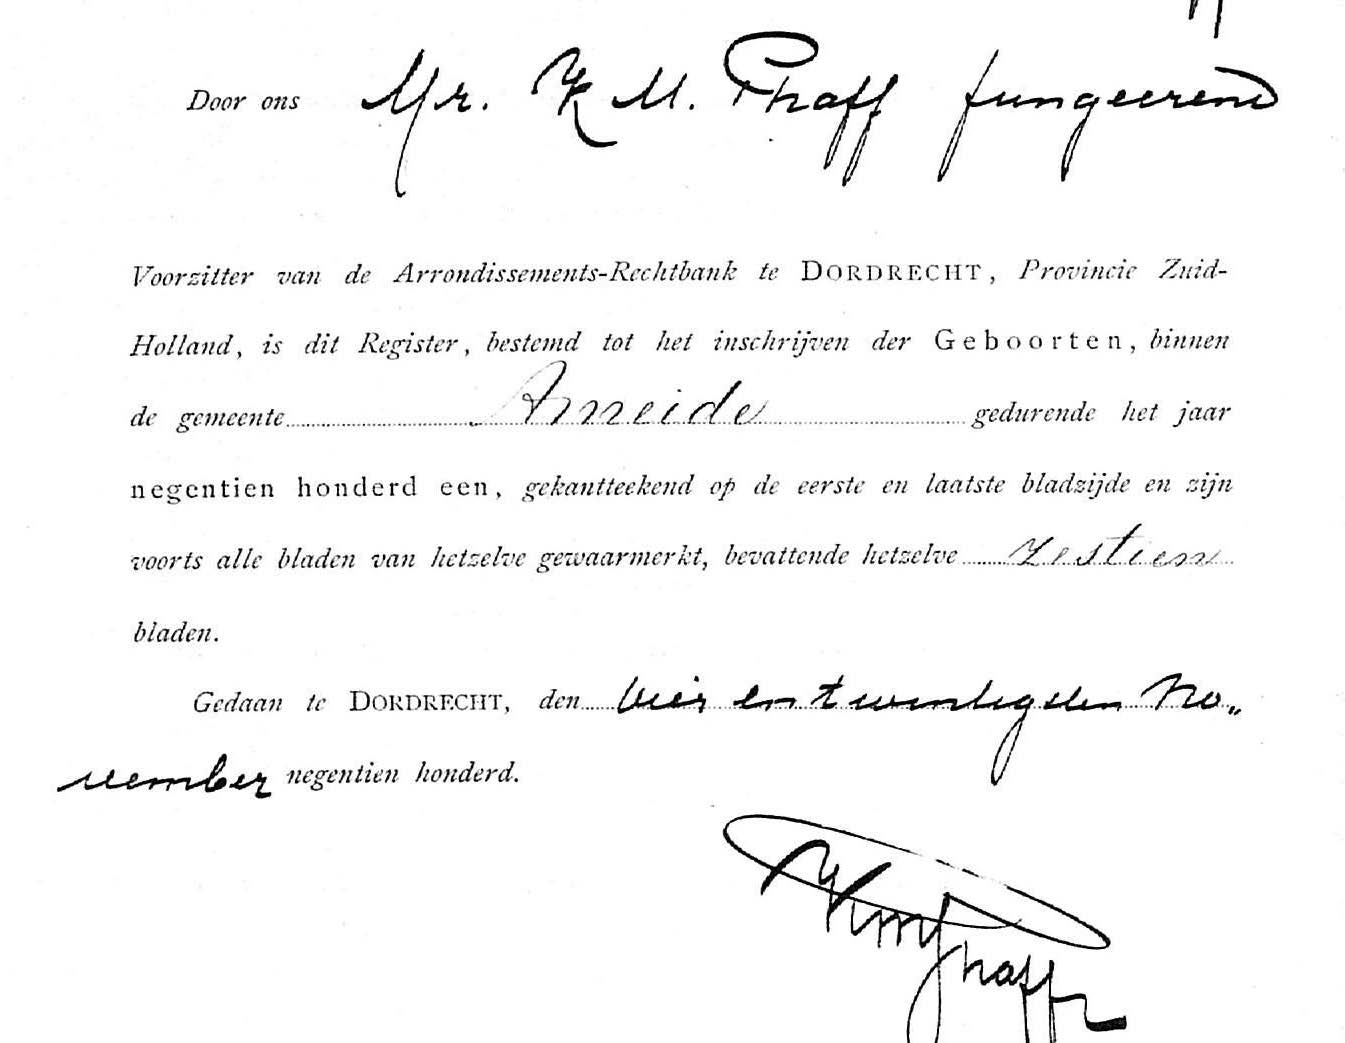 Door ons Mr. K M. Phaff fungeerend
Voorzitter van de Arrondissements-Rechtbank te DORDRECHT, Provincie Zuid-
Holland, is dit Register, bestemd tot het inschrijven der Geboorten, binnen
de gemeente Ameide gedurende het jaar
negentien honderd een, gekantteekend op de eerste en laatste bladzijde en zijn
voorts alle bladen van hetzelve gewaarmerkt, bevattende hetzelve zestien
bladen.
Gedaan te DORDRECHT, den vier en twintigsten No„
vember negentien honderd.
KMPhaff